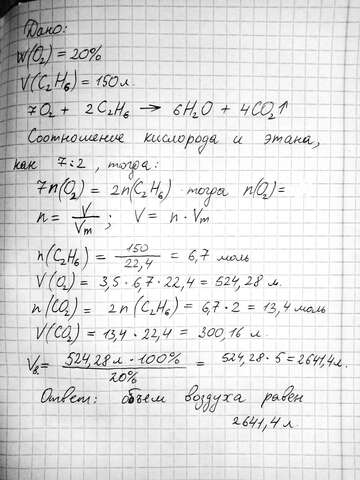 Дано:
W(O₂) = 20%
V(C₂H₆) = 150 л.
7O₂ + 2C₂H₆ → 6H₂O + 4CO₂↑
Соотношение кислорода и этана,
как 7:2, тогда:
7n(O₂) = 2n(C₂H₆) тогда n(O₂)=
n = V/Vm ; V = n · Vm
n(C₂H₆) = 150/22,4 = 6,7 моль
V(O₂) = 3,5 · 6,7 · 22,4 = 524,28 л.
n(CO₂) = 2n(C₂H₆) = 6,7 · 2 = 13,4 моль
V(CO₂) = 13,4 · 22,4 = 300,16 л.
Vв. = 524,28л · 100%/20% = 524,28 · 5 = 2641,4л.
Ответ: объем воздуха равен
2641,4 л.